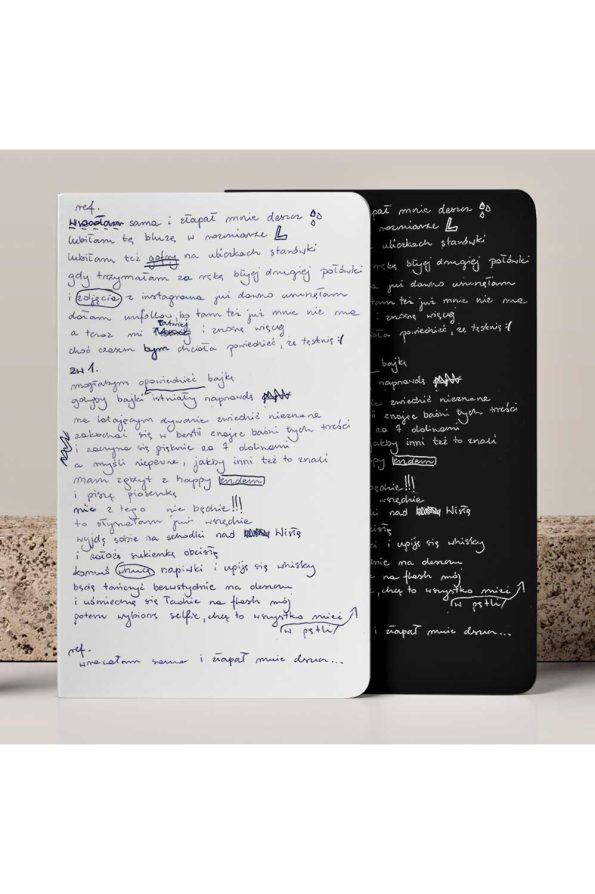 ref.
wracałam sama i złapał mnie deszcz
lubiłam tę bluzę w rozmiarze L
lubiłam też gofry na uliczkach starówki
gdy trzymałam za rękę byłej drugiej połówki
i zdjęcia z instagrama już dawno usunęłam
dałam unfollow, bo tam też już mnie nie ma
a teraz mi łatwiej i znoszę więcej
choć czasem bym chciała powiedzieć, że tęsknię :/
zw 1.
mogłabym opowiedzieć bajkę
gdyby bajki istniały naprawdę
na latającym dywanie zwiedzić nieznane
zakochać się w bestii znając baśni tych treści
i zaczyna się pięknie za 7 dolinami
a myśli niepewne, jakby inni też to znali
mam zgrzyt z happy endem
i piszę piosenkę
nic z tego nie będzie!!!
to słyszałam już wszędzie
wyjdę sobie na schodki nad Wisłę
i założę sukienkę obcisłą
komuś wrzucę napiwki i upiję się whisky
będę tańczyć bezwstydnie na deszczu
i uśmiechnę się ładnie na flesh mój
potem wybiorę selfie, chcę to wszystko mieć
(w pętli)
ref.
wracałam sama i złapał mnie deszcz...
pał mnie deszcz
rozmiarze L
uliczkach starówki
rękę byłej drugiej połówki
już dawno usunęłam
m też już mnie nie ma
i znoszę więcej
ała powiedzieć, że tęsknię :/
bajkę
naprawdę
zwiedzić nieznane
znając baśni tych treści
za 7 dolinami
jakby inni też to znali
ppy endem
będzie!!!
wszędzie
nad Wisłę
cisłą
ki i upiję się whisky
nie na deszczu
ie na flesh mój
, chcę to wszystko mieć
(w pętli)
i złapał mnie deszcz...